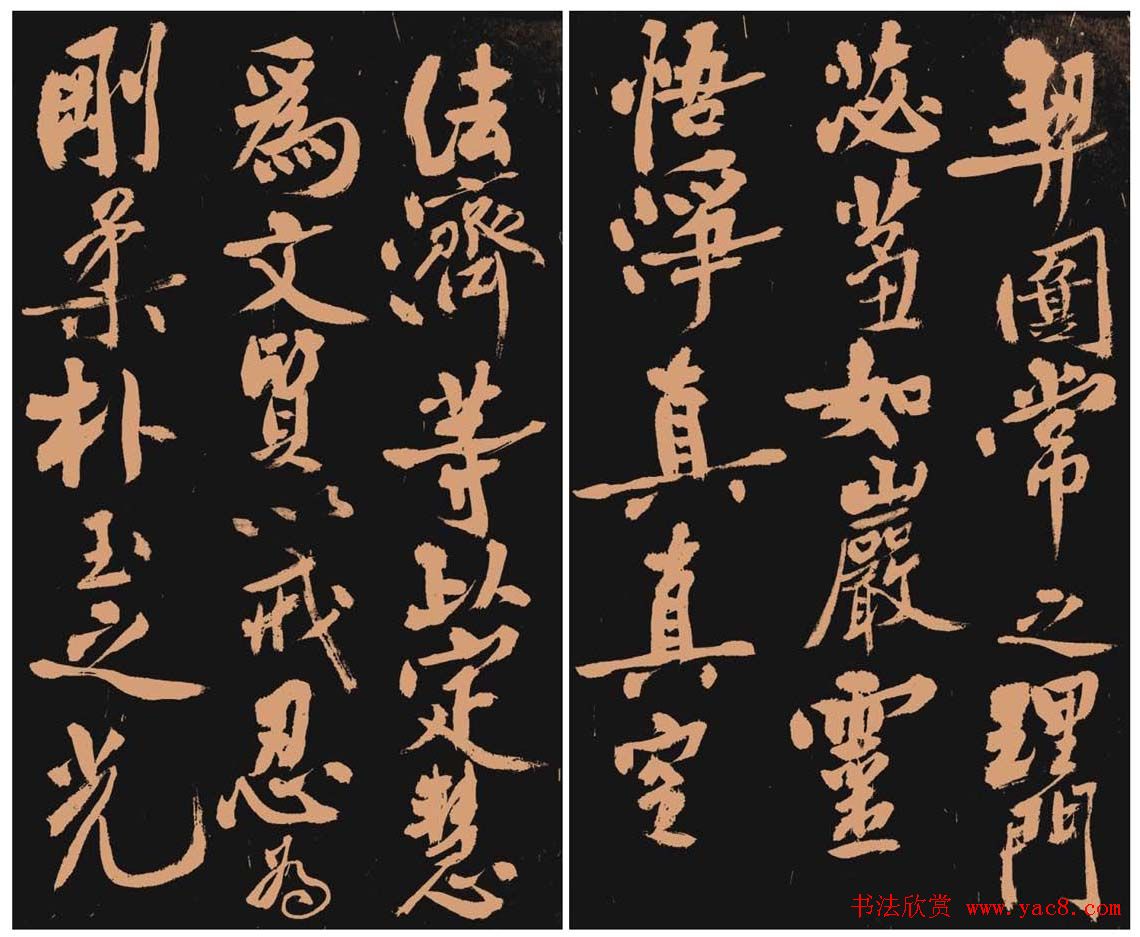 契圓常之理門
苾蒭如山嚴靈
悟淨真真空
法濟等以定慧
爲文質以戒忍為
剛柔朴玉之光
书法欣赏 www.yac8.com